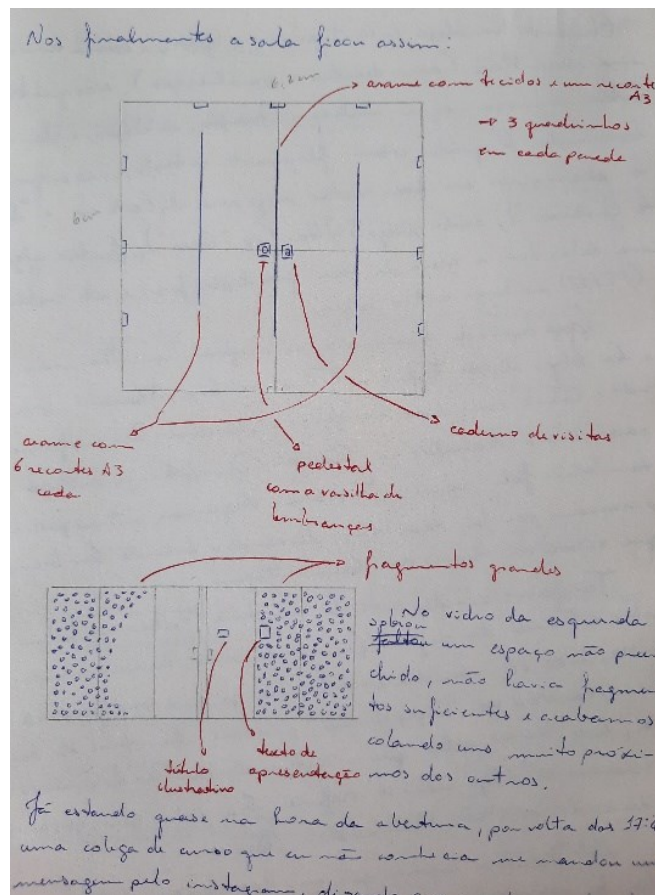 Nos finalmentes a sala ficou assim:
6,2cm
arame com tecidos e um recorte A3
→ 3 quadrinhos
em cada parede
6cm
arame com
6 recortes A3
cada
pedestal
com a vasilha de
lembranças
caderno de visitas
fragmentos grandes
No vidro da esquerda
sobrou
faltou um espaço não preen-
chido, não havia fragmen-
tos suficientes e acabamos
colando uns muito próxi-
mos dos outros.
título
ilustrativo
texto de
apresentação
Já estando quase na hora da abertura, por volta das 17:
uma colega de curso que eu não conhecia me mandou um
mensagem pelo instagram,